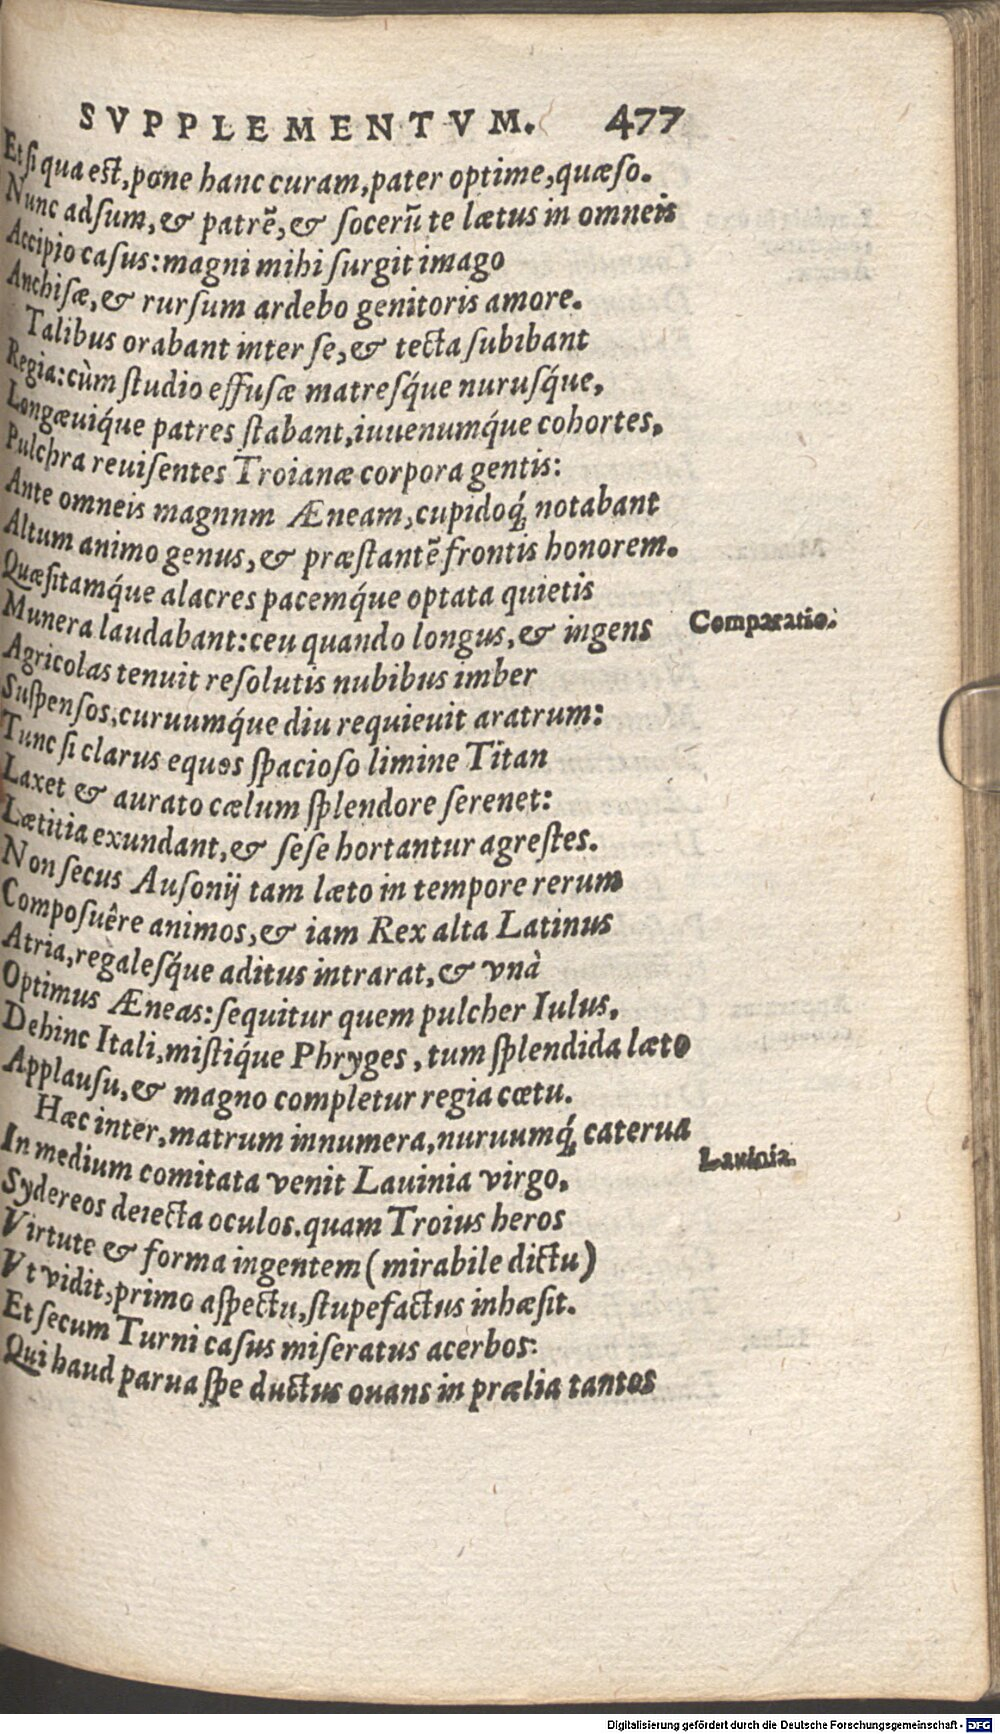 SVPPLEMENTVM. 477
Et ſi qua est, pone hanc curam, pater optime, quæſo.
Nunc adſum, & patrē, & ſocerū te lætus in omneis
Accipio caſus: magni mihi ſurgit imago
Anchiſæ, & rurſum ardebo genitoris amore.
Talibus orabant inter ſe, & tecta ſubibant
Regia: cùm ſtudio effuſæ matreſq́ue nuruſq́ue,
Longæuiq́ue patres ſtabant, iuuenumq́ue cohortes,
Pulchra reuiſentes Troianæ corpora gentis:
Ante omneis magnnm Æneam, cupidoq́; notabant
Altum animo genus, & præſtantē frontis honorem.
Quæſitamq́ue alacres pacemq́ue optata quietis
Munera laudabant: ceu quando longus, & ingens
Comparatio.
Agricolas tenuit reſolutis nubibus imber
Suſpenſos, curuumq́ue diu requieuit aratrum:
Tunc ſi clarus equos ſpacioſo limine Titan
Laxet & aurato cælum ſplendore ſerenet:
Lætitia exundant, & ſeſe hortantur agreſtes.
Non ſecus Auſonij tam læto in tempore rerum
Compoſuêre animos, & iam Rex alta Latinus
Atria, regaleſq́ue aditus intrarat, & vnà
Optimus Æneas: ſequitur quem pulcher Iulus,
Dehinc Itali, miſtiq́ue Phryges, tum ſplendida læto
Applauſu, & magno completur regia cœtu.
Hæc inter, matrum innumera, nuruumq́; caterua
Lauinia.
In medium comitata venit Lauinia virgo,
Sydereos deiecta oculos. quam Troius heros
Virtute & forma ingentem (mirabile dictu)
Vt vidit, primo aſpectu, ſtupefactus inhæſit.
Et ſecum Turni caſus miſeratus acerbos:
Qui haud parua ſpe ductus ouans in prælia tantos
Digitalisierung gefördert durch die Deutsche Forschungsgemeinschaft - DFG